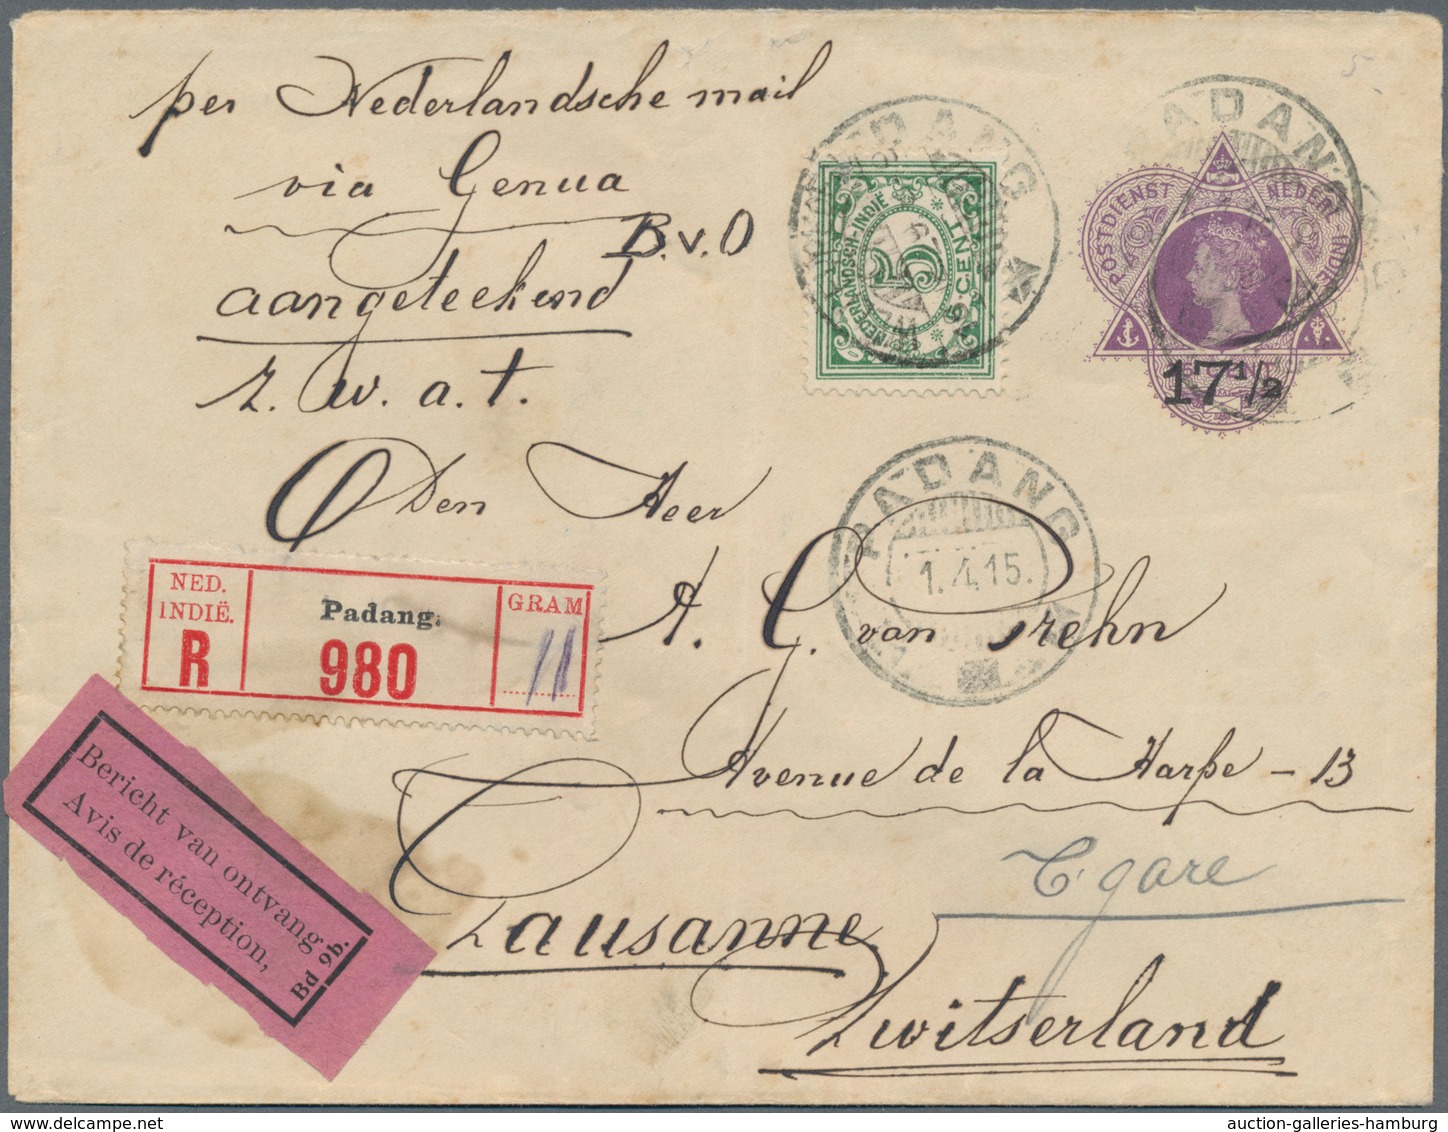 per Nederlandsche mail
via Genua
B.v.O
aangeteekend
z. w. a. t.
Den Heer
A. G. van Prehn
Avenue de la Harpe - 13
Lausanne
Zwitserland
PADANG
NEDERLANDSCH-INDIË
5 CENT
PADANG
POSTDIENST NEDERL INDIE
17 1/2
PADANG
1.4.15.
NED.
INDIË.
R
Padang.
980
GRAM
11
Bericht van ontvang
Avis de réception,
Bd 9b.
gare
auction-galleries-hamburg